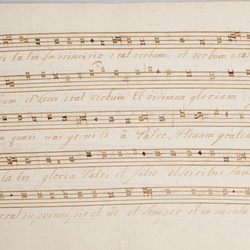 in principio erat verbum, et verbum erat
um, et Deus erat verbum Et vidimus gloriam
quasi uni ge ni ti à Patre, Plenum grati
gloria Patri et filio et Spiritui San
erat in princi pio et nc. et semper et in